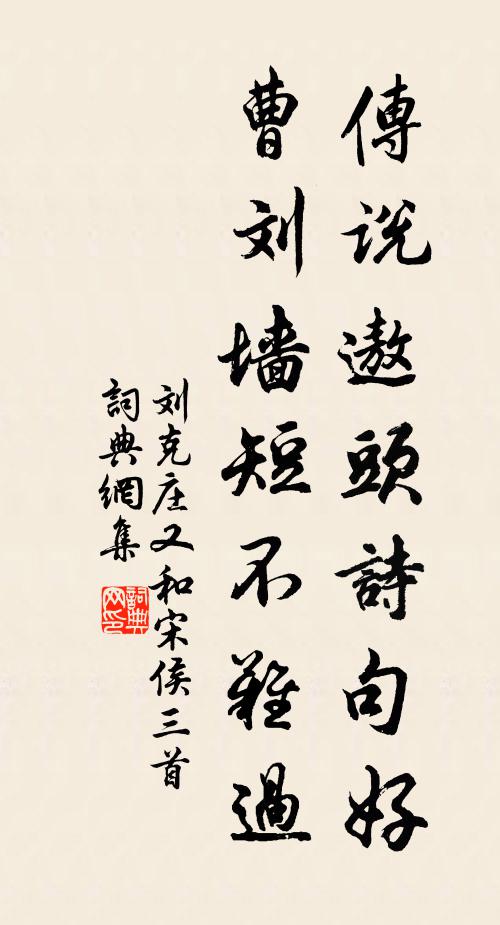 傳説遨頭詩句好
曹刘墙短不難過
刘克庄又和宋侯三首
詞典網集
詞典网印